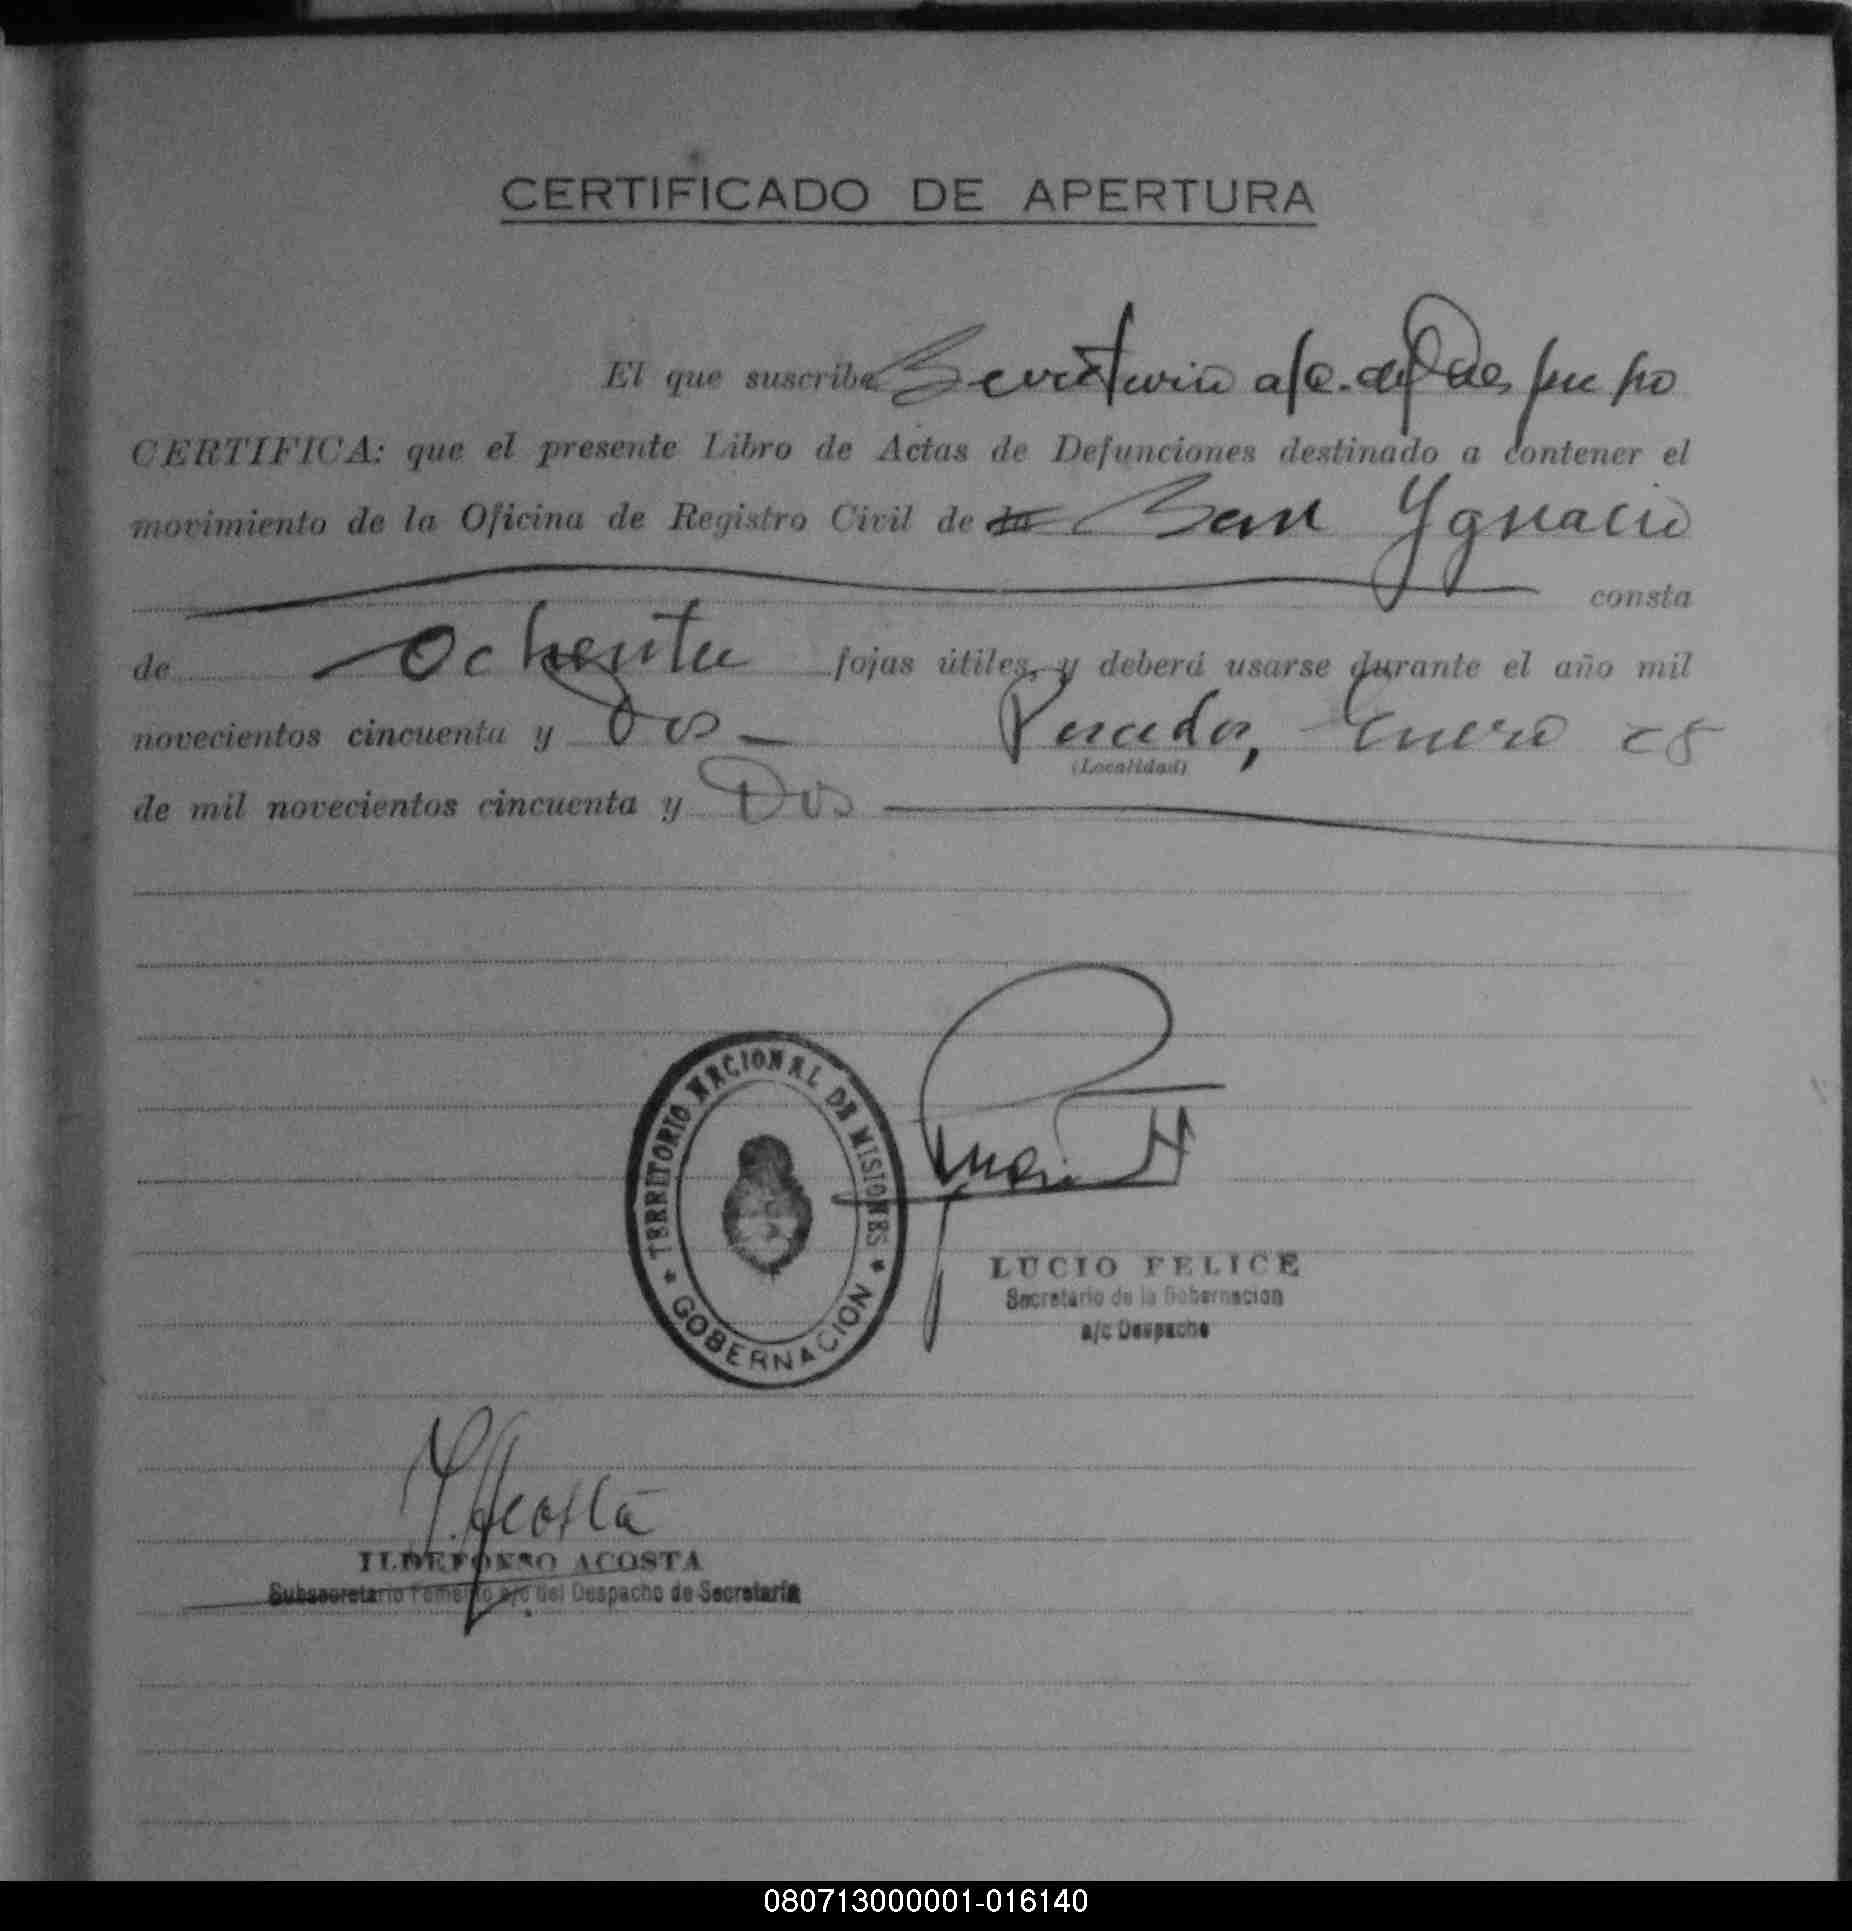 CERTIFICADO DE APERTURA
El que suscribe Secretario a/c. del Despacho
CERTIFICA: que el presente Libro de Actas de Defunciones destinado a contener el
movimiento de la Oficina de Registro Civil de San Ygnacio
consta
de Ochenta fojas útiles, y deberá usarse durante el año mil
novecientos cincuenta y Dos Posadas, Enero 25
(Localidad)
de mil novecientos cincuenta y Dos
TERRITORIO NACIONAL DE MISIONES
GOBERNACION
LUCIO FELICE
Secretario de la Gobernacion
a/c Despacho
Y. Acosta
ILDEFONSO ACOSTA
Subsecretario Fomento a/c del Despacho de Secretaría
080713000001-016140